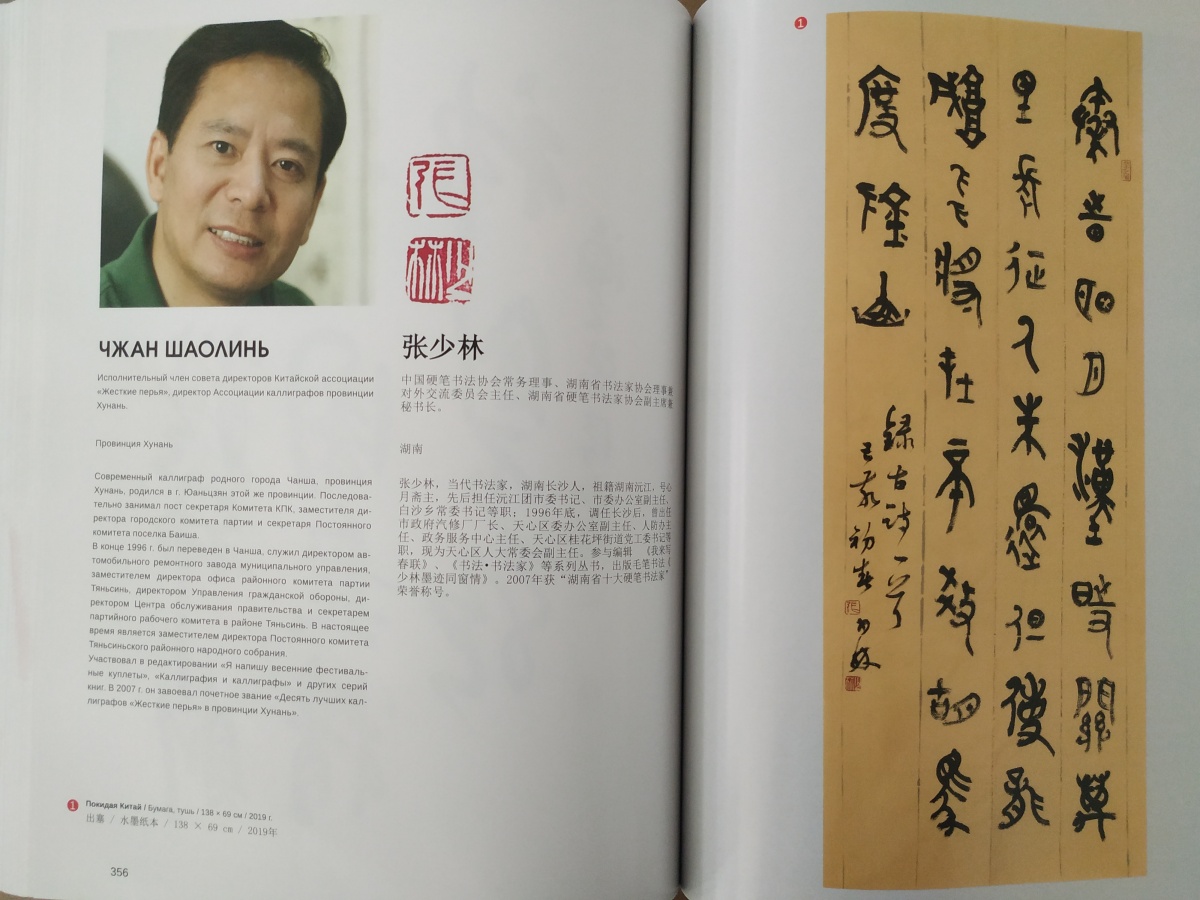 張
少林
ЧЖАН ШАОЛИНЬ
Исполнительный член совета директоров Китайской ассоциации
«Жесткие перья», директор Ассоциации каллиграфов провинции
Хунань.
Провинция Хунань
Современный каллиграф родного города Чанша, провинция
Хунань, родился в г. Юаньцзян этой же провинции. Последова-
тельно занимал пост секретаря Комитета КПК, заместителя ди-
ректора городского комитета партии и секретаря Постоянного
комитета поселка Баиша.
В конце 1996 г. был переведен в Чанша, служил директором ав-
томобильного ремонтного завода муниципального управления,
заместителем директора офиса районного комитета партии
Тяньсинь, директором Управления гражданской обороны, ди-
ректором Центра обслуживания правительства и секретарем
партийного рабочего комитета в районе Тяньсинь. В настоящее
время является заместителем директора Постоянного комитета
Тяньсиньского районного народного собрания.
Участвовал в редактировании «Я напишу весенние фестиваль-
ные куплеты», «Каллиграфия и каллиграфы» и других серий
книг. В 2007 г. он завоевал почетное звание «Десять лучших кал-
лиграфов «Жесткие перья» в провинции Хунань».
张少林
中国硬笔书法协会常务理事、湖南省书法家协会理事兼
对外交流委员会主任、湖南省硬笔书法家协会副主席兼
秘书长。
湖南
张少林，当代书法家，湖南长沙人，祖籍湖南沅江，号心
月斋主，先后担任沅江团市委书记、市委办公室副主任，
白沙乡常委书记等职；1996年底，调任长沙后，曾出任
市政府汽修厂厂长、天心区委办公室副主任、人防办主
任、政务服务中心主任、天心区桂花坪街道党工委书记等
职，现为天心区人大常委会副主任。参与编辑 《我来写
春联》、《书法•书法家》等系列丛书，出版毛笔书法《
少林墨迹同窗情》。2007年获“湖南省十大硬笔书法家”
荣誉称号。
1 Покидая Китай / Бумага, тушь / 138 × 69 см / 2019 г.
出塞 / 水墨纸本 / 138 × 69 cm / 2019年
356
1
秦時明月漢時關萬
里長征人未還但使龍
城飛將在不教胡馬
度陰山
録古詩一首
己亥初春 少林